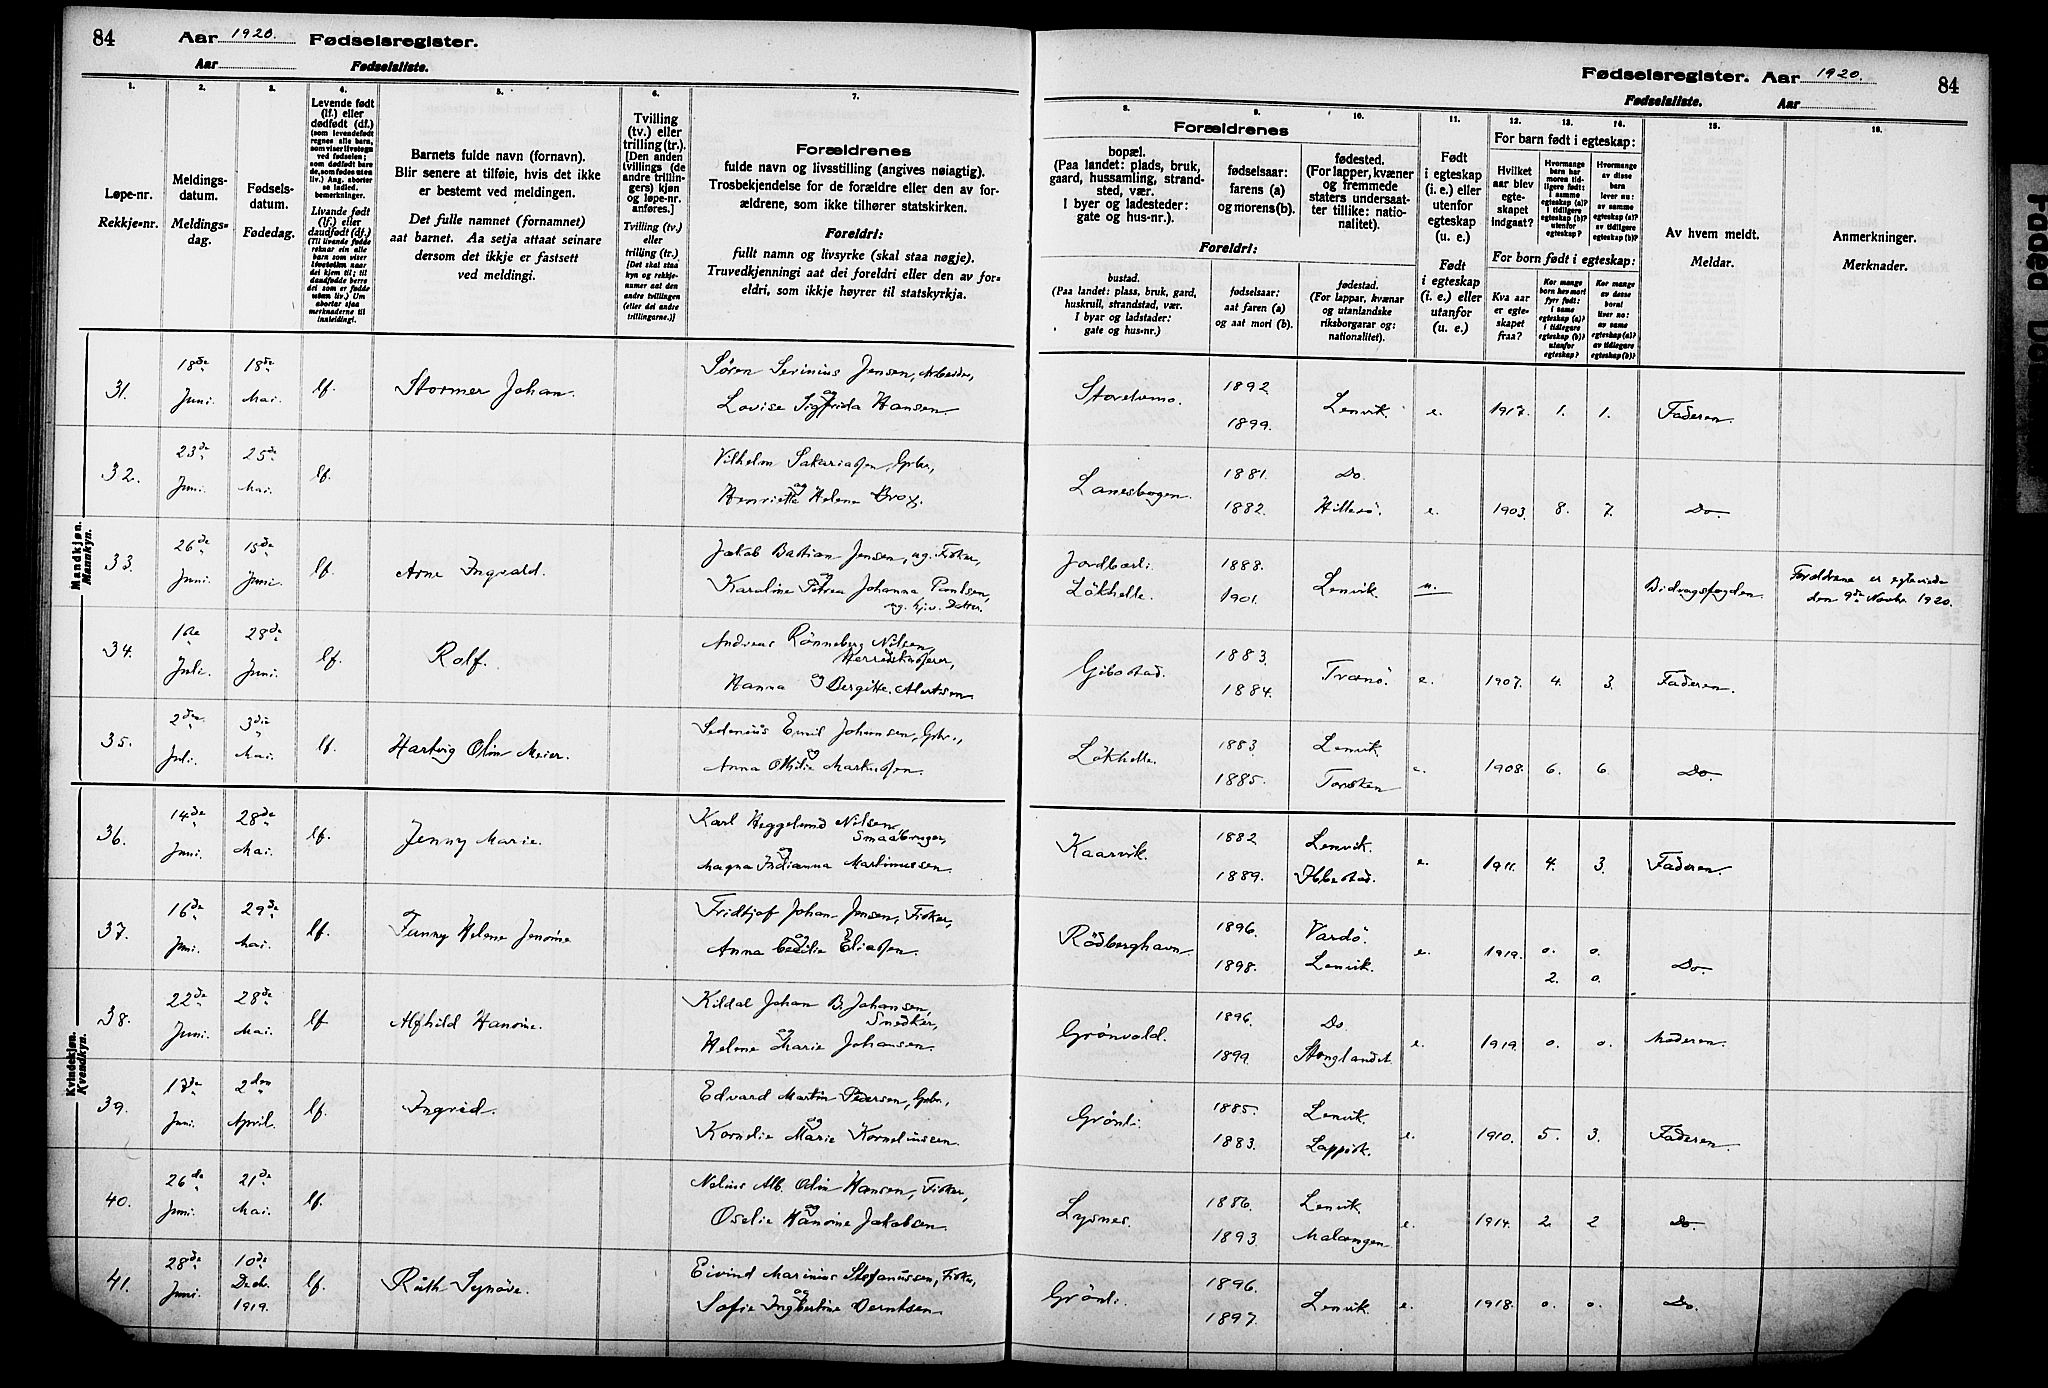 84 Aar 1920. Fødselsregister.
Aar Fødselsliste.
Fødselsregister. Aar 1920. 84
Fødselsliste. Aar
1. 2. 3. 4. 5. 6. 7. 8. 9. 10. 11. 12. 13. 14. 15. 16.
Løpe-nr.
Rekkje-nr.
Meldings-
datum.
Meldings-
dag.
Fødsels-
datum.
Fødedag.
Levende født
(lf.) eller
dødfødt (df.)
(som levendefødt
regnes alle barn,
som viser livstegn
ved fødselen;
som dødfødt bare
de, som fødes uten
liv.) Ang. aborter
se ladied.
bemerkninger.
Livande fødd
(lf.) eller
daudfødt (df.)
Barnets fulde navn (fornavn).
Blir senere at tilføie, hvis det ikke
er bestemt ved meldingen.
Det fulle namnet (fornamnet)
aat barnet. Aa setja attaat seinare
dersom det ikkje er fastsett
ved meldingi.
Tvilling
(tv.) eller
trilling (tr.).
[Den anden
tvillings (de
andre trillin-
gers) kjøn
og løpe-nr.
anføres.]
Tvilling (tv.)
eller
trilling (tr.)
[Det skal staa
kyn og rekkje-
numer aat den
andre tvillingen
(eller dei andre
trillingarne.)]
Forældrenes
fulde navn og livsstilling (angives nøiagtig).
Trosbekjendelse for de forældre eller den av for-
ældrene, som ikke tilhører statskirken.
Foreldri:
fullt namn og livsyrke (skal staa nøgje).
Truvedkjenningi aat dei foreldri eller den av for-
eldri, som ikkje høyrer til statskyrkja.
Forældrenes
bopæl.
(Paa landet: plads, bruk,
gaard, hussamling, strand-
sted, vær.
I byer og ladesteder:
gate og hus-nr.).
fødselsaar:
farens (a)
og morens (b).
fødested.
(For lapper, kvæner
og fremmede
staters undersaat-
ter tillike: natio-
nalitet).
Foreldri:
bustad.
(Paa landet: plass, bruk, gard,
huskrull, strandstad, vær.
I byar og ladstader:
gate og hus-nr.)
fødselsaar:
aat faren (a)
og aat mori (b).
fødestad.
(For lappar, kvænar
og utanlandske
riksborgarar og:
nationalitet).
Født
i egteskap
(i. e.) eller
utenfor
egteskap
(u. e.)
Født
i egteskap
(i. e.) eller
utanfor
(u. e.)
For barn født i egteskap:
Hvilket
aar blev
egte-
skapet
indgaat?
Hvormange
barn har
moren tid-
ligere født:
i samme
egteskap (a)?
i tidligere
egteskap (b)?
utenfor
egteskap?
Hvormange
av disse
barn
lever nu:
av samme
egteskap (a)?
av tidligere
egteskap (b)?
For born født i egteskap:
Kva aar
er egte-
skapet
fraa?
Av hvem meldt.
Meldar.
Anmerkninger.
Merknader.
Mandkjøn.
Mannkyn.
31. 18de Juni. 18de Mai. lf. Stormer Johan. Søren Serinius Jensen, Arbeider, og Lovise Sigfrida Hansen Storelvmo. 1892 1899. Lenvik. e. 1917. 1. 1. Faderen.
32. 23de Juni. 25de Mai. lf. Vilhelm Sakariasen, Gbr., og Henriette Helene Brox. Lanesbogen. 1881. 1882. Do. Hillesø. e. 1903. 8. 7. Do.
33. 26de Juni. 15de Juni. lf. Arne Ingvald. Jakob Bastian Jensen, ug. Fisker, og Karoline Petrea Johanna Paulsen, ug. Gbr. Datter Jordbærli. Løkhelle. 1888. 1901. Lenvik. u. Bidragsfogden. Foreldrene er egteviede den 9de Novbr. 1920.
34. 1ste Juli. 28de Juni. lf. Rolf. Andreas Rønneberg Nilsen, Herredskasserer, og Hanna Bergitte Albertsen Gibostad. 1883. 1884. Tranø. e. 1907. 4. 3. Faderen.
35. 2den Juli. 3die Mai. lf. Hartvig Olin Meier. Sedenius Emil Johansen, Gbr., og Anna Othilie Markussen. Løkhelle. 1883. 1885. Lenvik. Torsken e. 1908. 6. 6. Do.
Kvindekjøn.
Kvendkyn.
36. 14de Juni. 28de Mai. lf. Jenny Marie. Karl Heggelund Nilsen Smaabruger, og Magna Indianna Martinussen Kaarvik. 1882 1889. Lenvik. Ibbestad. e. 1911. 4. 3. Faderen.
37. 16de Juni. 29de Mai. lf. Funny Helene Jensine Fridtjof Johan Jensen, Fisker, og Anna Cecilie Eliassen. Rødberghavn. 1896. 1898. Vardø. Lenvik. e. 1919. 0. 0. 2. 0. Do.
38. 22de Juni. 28de Mai. lf Alfhild Hansine. Kildal Johan B. Johansen, Snedker, og Helene Marie Johansen. Grønvold. 1896. 1899. Do. Stonglandet. e. 1919. 0. 0. Moderen.
39. 17de Juni. 2den April. lf. Ingrid. Edvard Martin Pedersen, Gbr., og Kornelie Marie Kornelinssen. Grønli. 1885. 1883. Lenvik. Lappisk. e. 1910. 5. 3. Faderen.
40. 26de Juni. 21de Mai. lf. Nelius Alb. Olin Hansen, Fisker, og Oselie Hansine Jakobsen. Lysnes. 1886. 1893. Lenvik. Malangen. e. 1914. 2. 2 Do.
41. 28de Juni. 10de Decb. 1919. lf. Ruth Synøve. Eivind Marinius Stefanussen, Fisker, og Sofie Ingbertine Berntsen Grønli. 1896. 1897. Lenvik. e. 1918. 0. 0. Do.